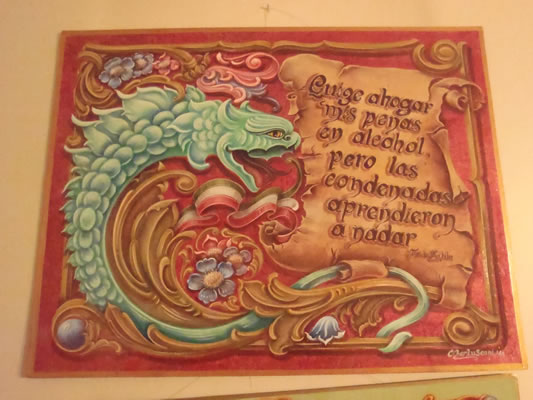 Quise ahogar
mis penas
en alcohol
pero las
condenadas
aprendieron
a nadar